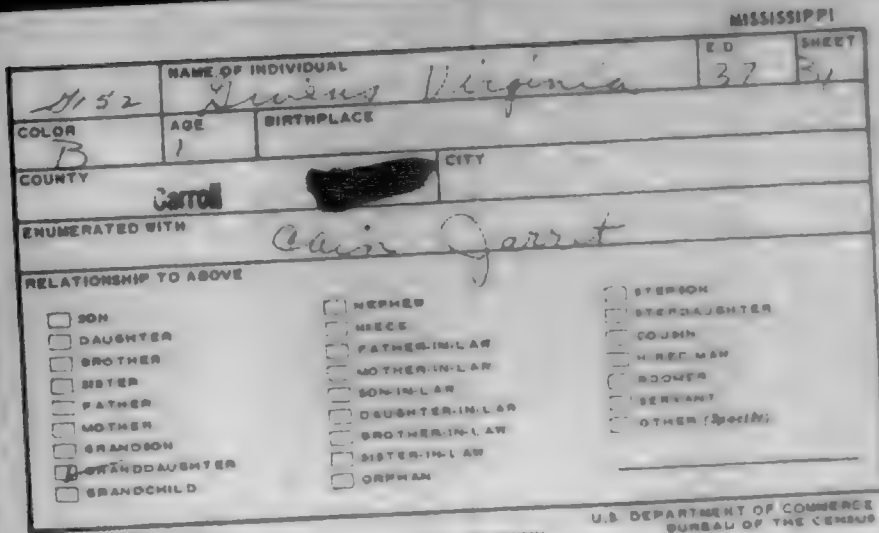 MISSISSIPPI
NAME OF INDIVIDUAL E D SHEET
G152 Givens Virginia 37
COLOR AGE BIRTHPLACE
B 1
COUNTY CITY
Carroll
ENUMERATED WITH
Cain Jarrit
RELATIONSHIP TO ABOVE
SON
DAUGHTER
BROTHER
SISTER
FATHER
MOTHER
GRANDSON
GRANDDAUGHTER
GRANDCHILD
NEPHEW
NIECE
FATHER-IN-LAW
MOTHER-IN-LAW
SON-IN-LAW
DAUGHTER-IN-LAW
BROTHER-IN-LAW
SISTER-IN-LAW
ORPHAN
STEPSON
STEPDAUGHTER
COUSIN
HIRED MAN
ROOMER
SERVANT
OTHER (Specify)
U.S. DEPARTMENT OF COMMERCE
BUREAU OF THE CENSUS